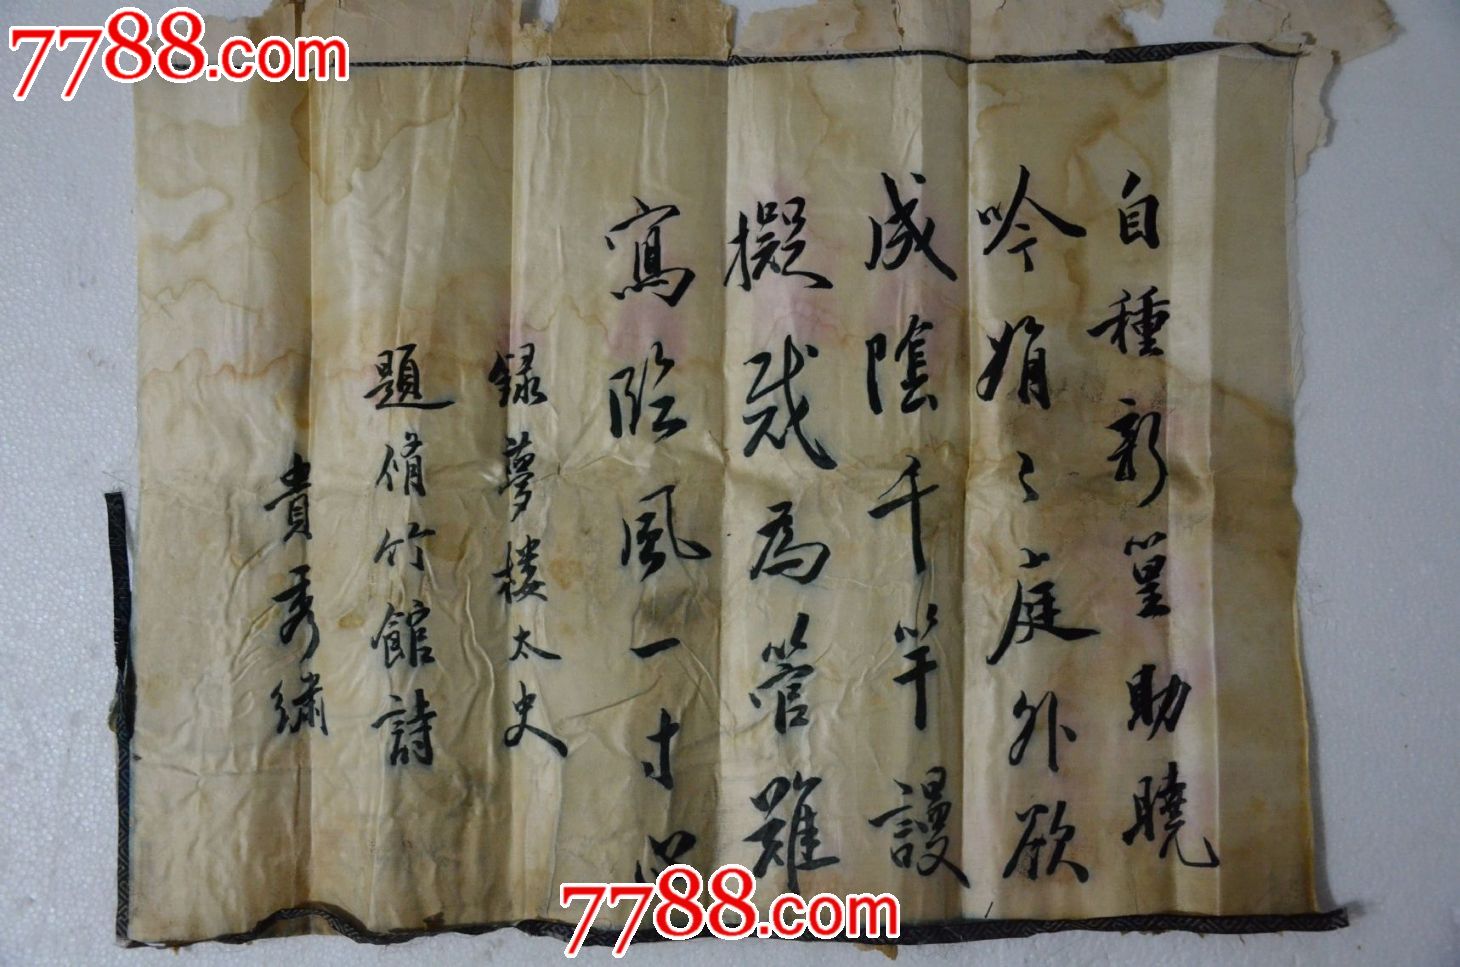 7788.com
自種新篁助曉
吟娟〻庭外欲
成陰千竿謾
擬裁為管難
寫臨風一寸心
錄夢樓太史
題脩竹館詩
貴秀繡
7788.com